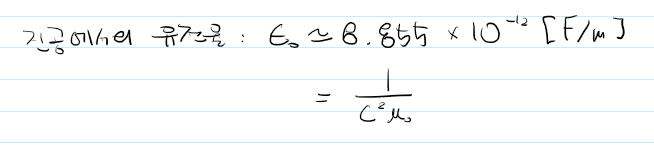 진공에서의 유전율 : ε₀ ≃ 8.855 × 10⁻¹² [F/m]
= 1/(c²μ₀)